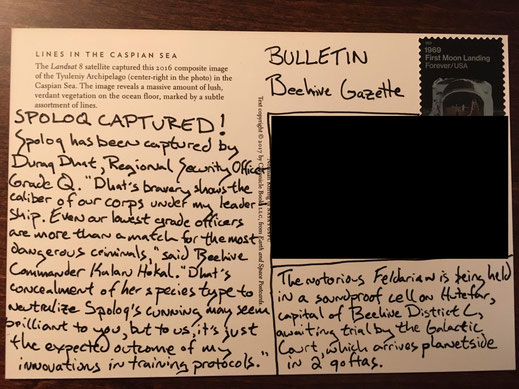 LINES IN THE CASPIAN SEA
The Landsat 8 satellite captured this 2016 composite image
of the Tyuleniy Archipelago (center-right in the photo) in the
Caspian Sea. The image reveals a massive amount of lush,
verdant vegetation on the ocean floor, marked by a subtle
assortment of lines.
SPOLOQ CAPTURED!
Spoloq has been captured by
Duraq Dhat, Regional Security Officer
Grade Q. "Dhat's bravery shows the
caliber of our corps under my leader-
ship. Even our lowest grade officers
are more than a match for the most
dangerous criminals," said Beehive
Commander Kularu Hokal. "Dhat's
concealment of her species type to
neutralize Spoloq's cunning may seem
brilliant to you, but to us, it's just
the expected outcome of my
innovations in training protocols."
Text copyright © 2017 by Chronicle Books LLC, from Earth and Space Postcards
BULLETIN
Beehive Gazette
1969
First Moon Landing
Forever/USA
The notorious Feldarian is being held
in a soundproof cell on Hutefar,
capital of Beehive District C,
awaiting trial by the Galactic
Court, which arrives planetside
in 2 qoftas.